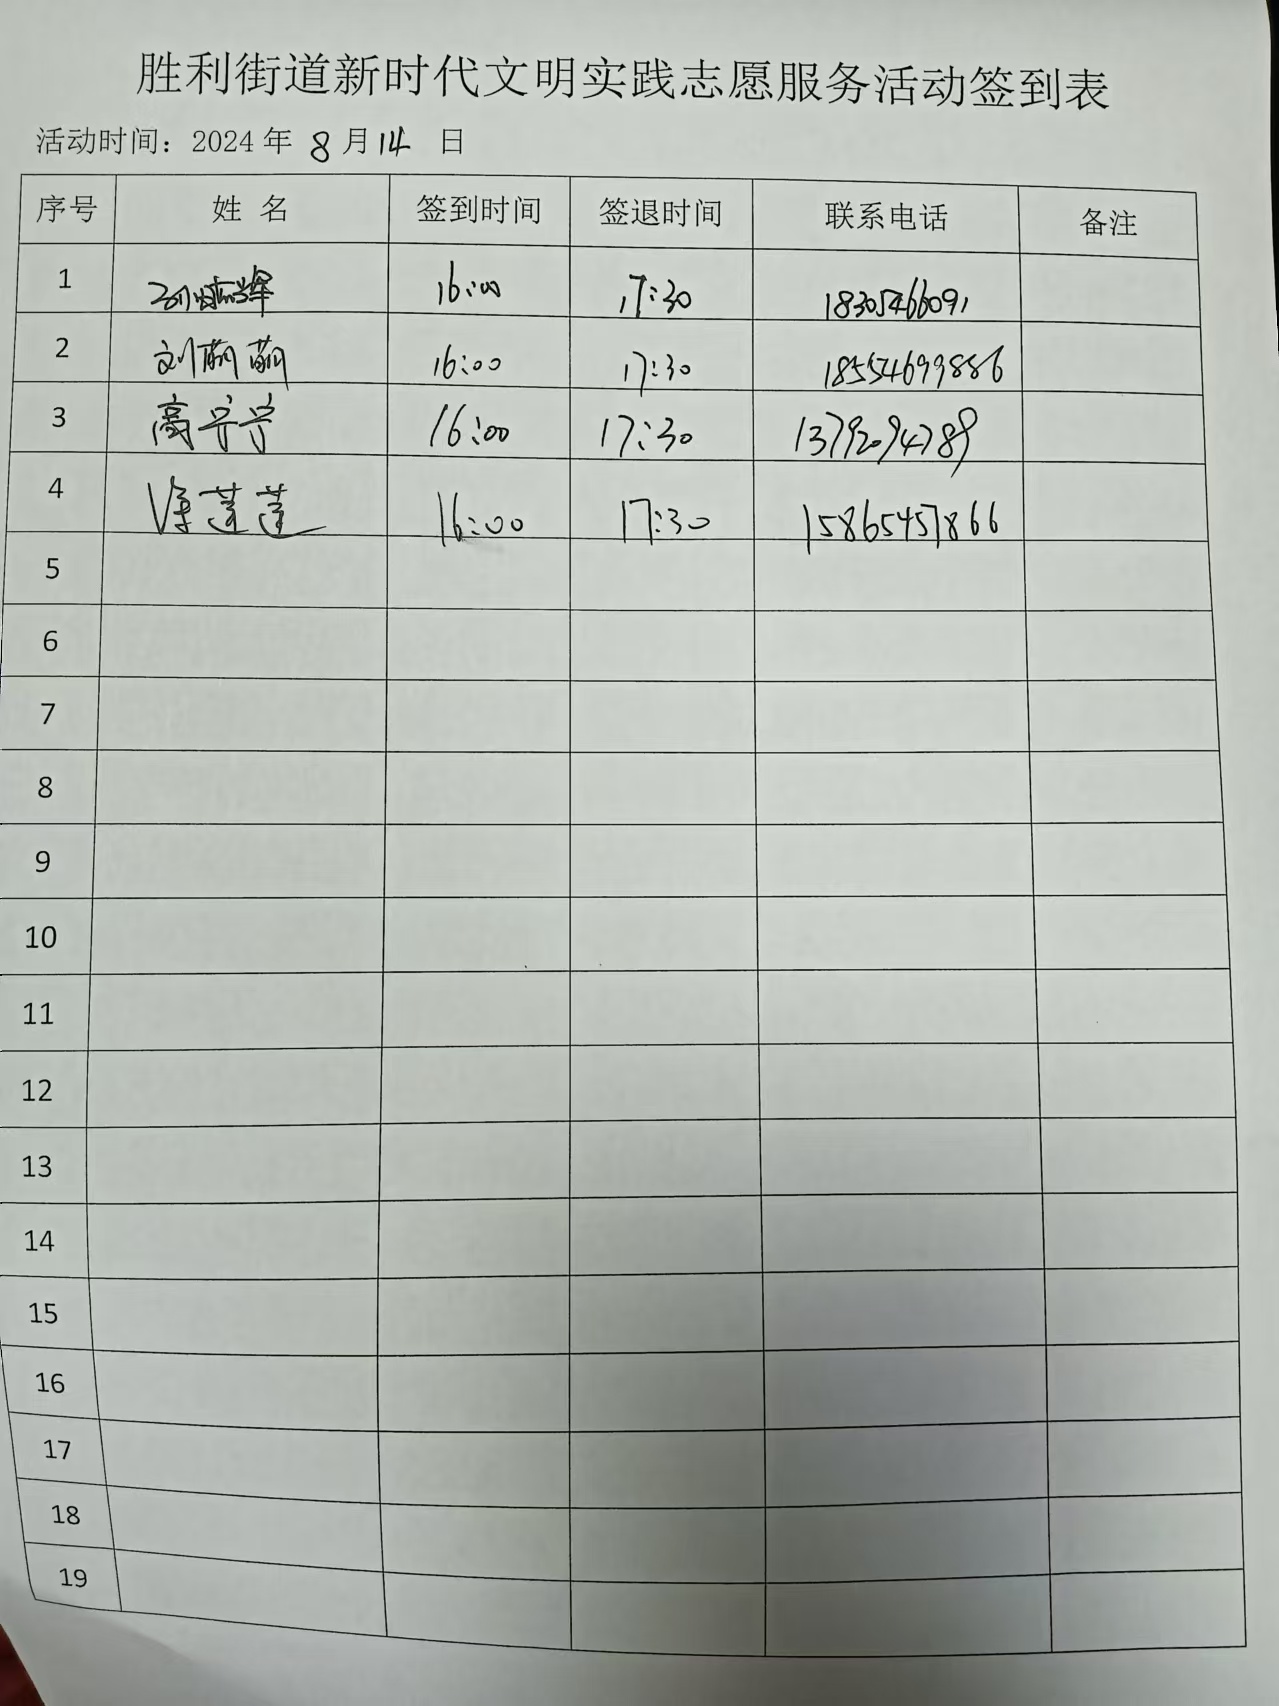 胜利街道新时代文明实践志愿服务活动签到表
活动时间：2024年 8月14 日
序号 姓名 签到时间 签退时间 联系电话 备注
1 16:00 17:30 18305466091
2 刘萌萌 16:00 17:30 18554699886
3 高宁宁 16:00 17:30 13792094789
4 徐莲莲 16:00 17:30 15865457866
5
6
7
8
9
10
11
12
13
14
15
16
17
18
19